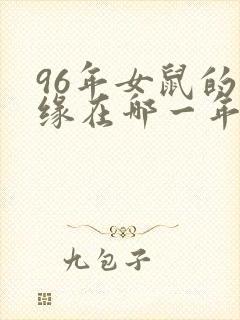 96年女鼠的
缘在哪一年
九包子